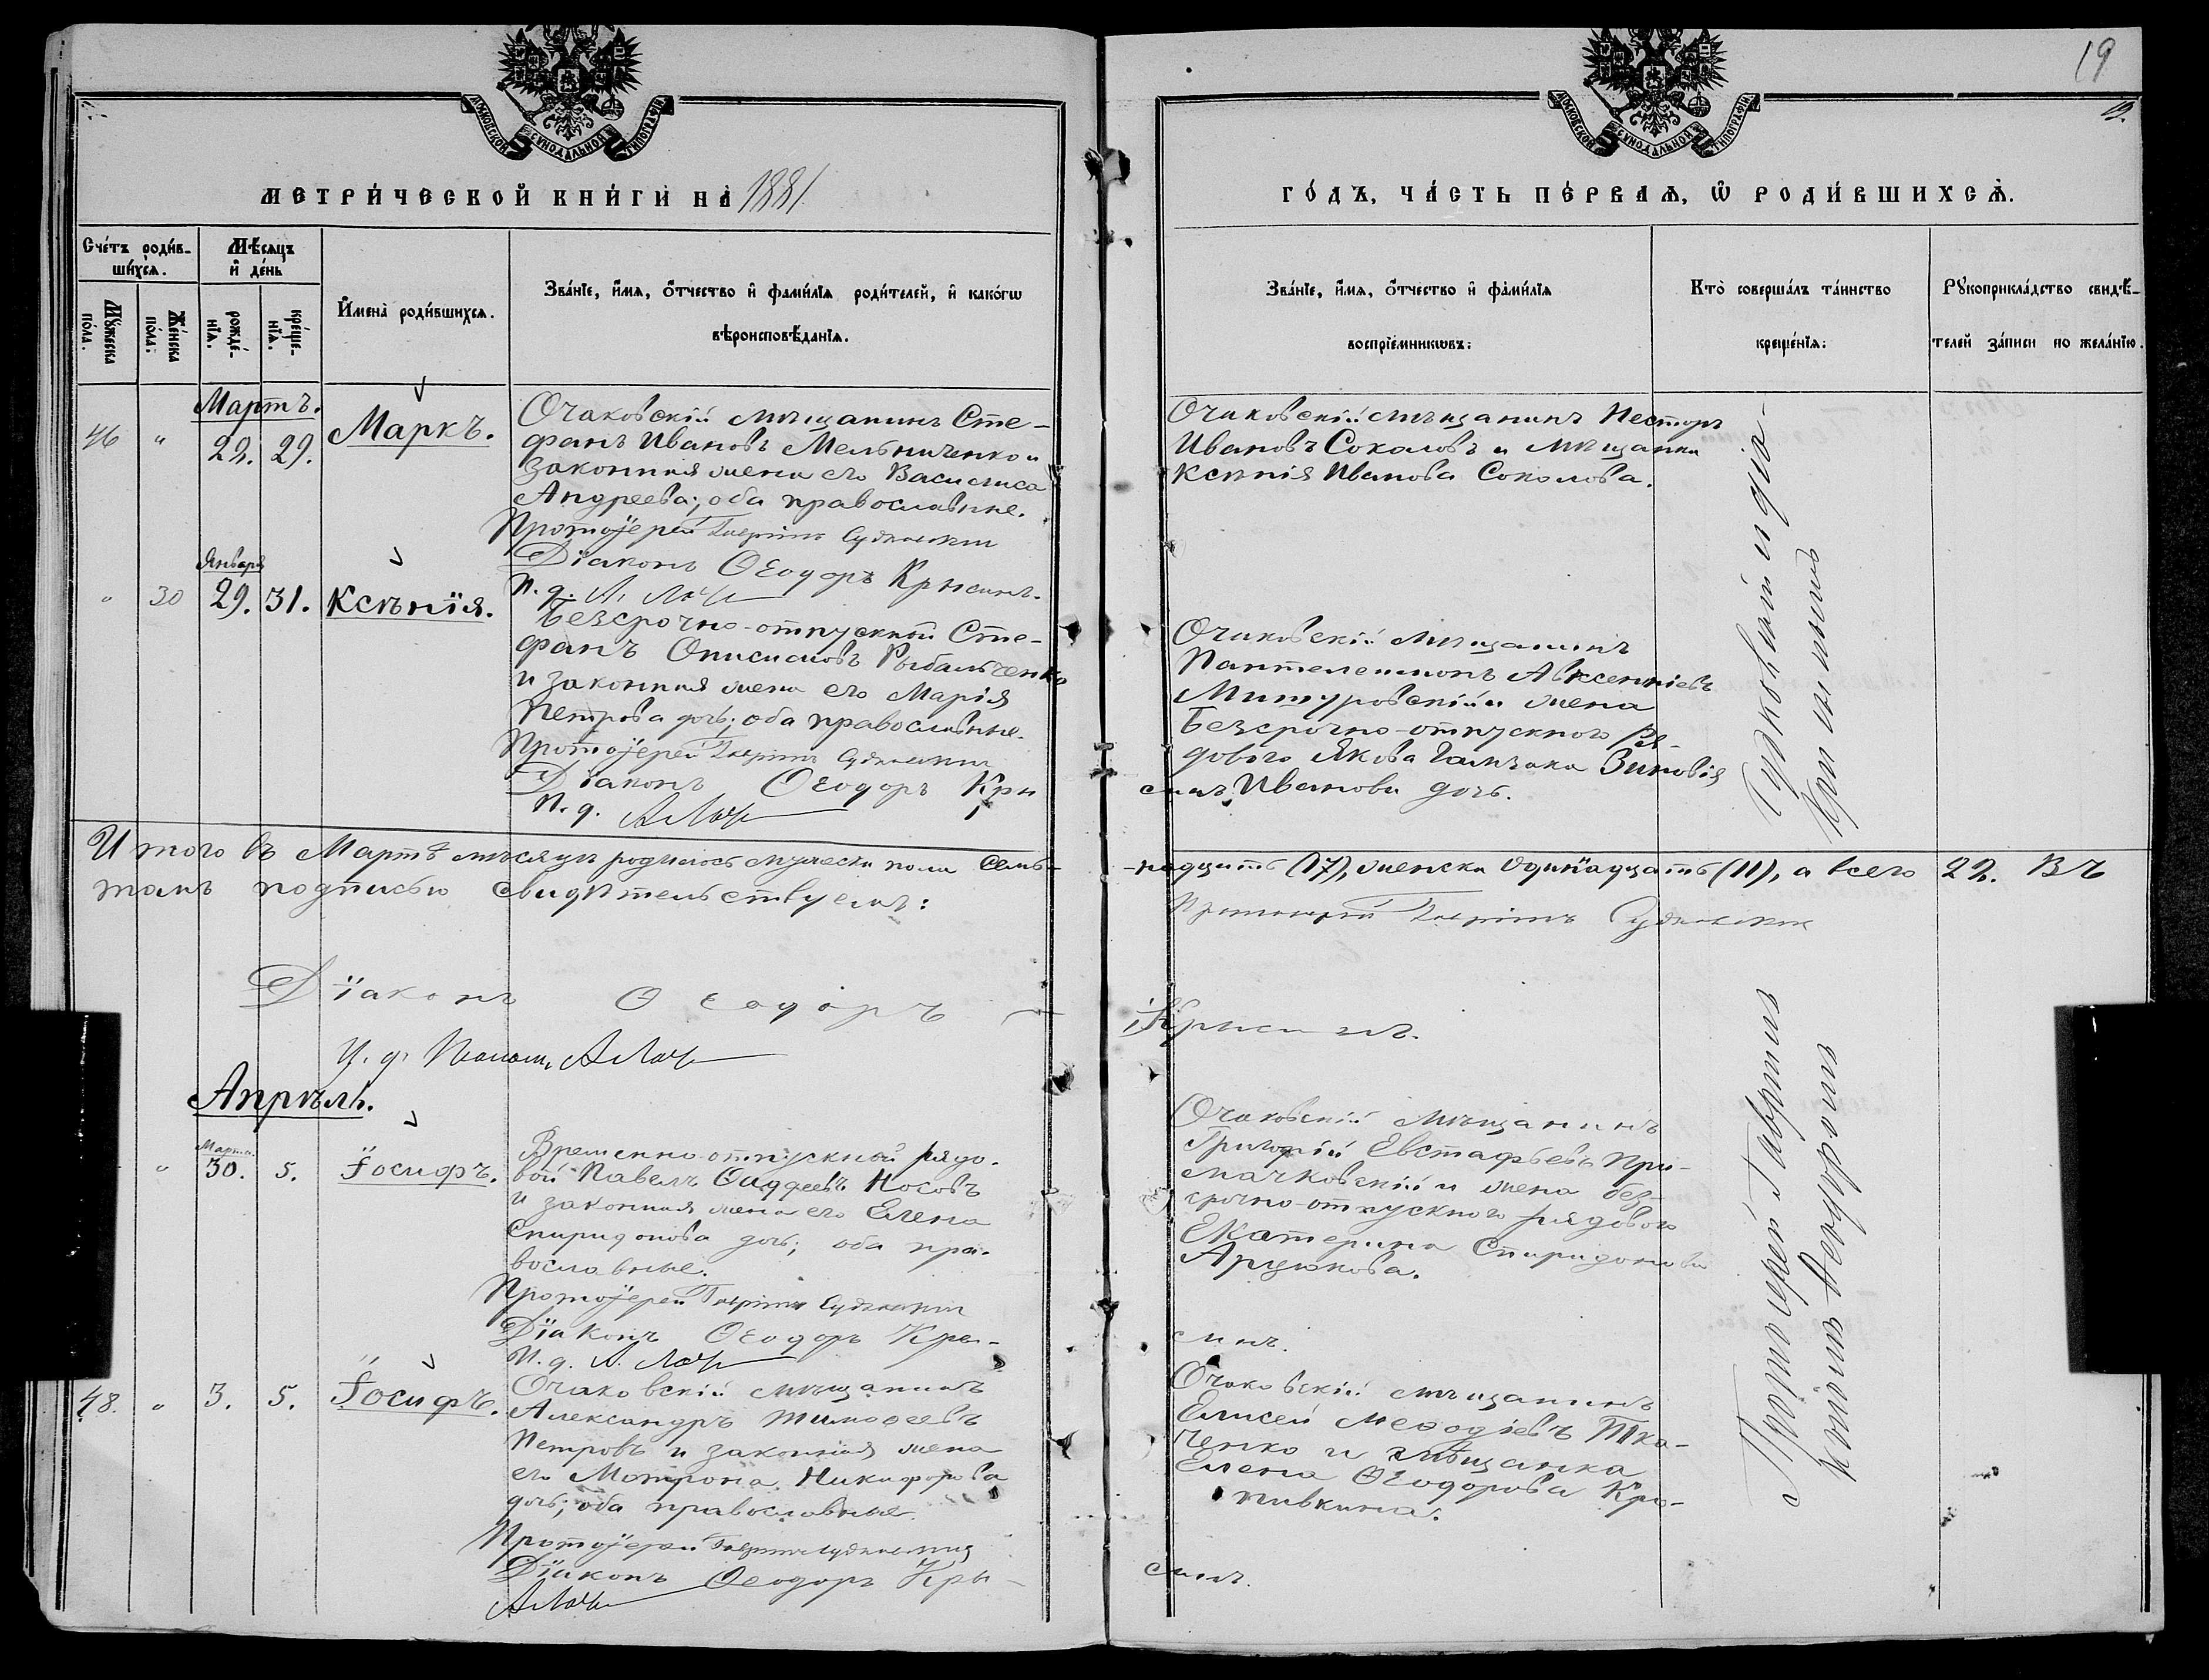 19
19.
МОСКОВСКОЙ СѴНОДАЛЬНОЙ ТИПОГРАФІИ
МОСКОВСКОЙ СѴНОДАЛЬНОЙ ТИПОГРАФІИ
МЕТРИ́ЧЕСКОЙ КНИ́ГИ НА̀ 1881
ГО́ДЪ, ЧА́СТЬ ПЕ́РВАѦ, Ѿ РОДИ́ВШИХСѦ.
Сче́тъ роди́в-
ши́хсѧ.
Мꙋ́жеска по́ла.
Же́нска по́ла:
Мѣ́сѧцъ
и҆ де́нь
рожде́-
нїѧ.
креще́-
нїѧ.
И҆мена̀ роди́вшихсѧ.
Зва́нїе, и҆́мѧ, ѻ҆́тчество и҆ фами́лїѧ роди́телей, и҆ како́гѡ
вѣроисповѣ́данїѧ.
Зва́нїе, и҆́мѧ, ѻ҆́тчество и҆ фами́лїѧ
воспрїе́мникѡвъ:
Кто̀ соверша́лъ та́инство
креще́нїѧ:
Рꙋкоприкла́дство свидѣ́-
телей за́писи по жела́нїю.
Мартъ.
46 " 29. 29. Маркъ.
Очаковскій мѣщанинъ Сте-
фанъ Ивановъ Мельниченко и
законная жена его Василиса
Андреева; оба православные.
Протоїерей Гавріилъ Судковскій
Дїаконъ Ѳеодоръ Крысинъ.
И. д. А.
Очаковскій мѣщанинъ Несторъ
Ивановъ Соколовъ и мѣщанка
Ксенія Иванова Соколова.
Января
" 30 29. 31. Ксѣнїя.
Безсрочно-отпускной Сте-
фанъ Онисимовъ Рыбальченко
и законная жена его Марія
Петрова дочь; оба православные.
Протоїерей Гавріилъ Судковскій
Дїаконъ Ѳеодоръ Кры
синъ.
И. д.
Очаковскій мѣщанинъ
Пантелеимонъ Авксентіевъ
Митуровскій и жена
безсрочно-отпускного ря-
дового Якова Зиновія
Иванова дочь.
Итого въ Мартѣ мѣсяцѣ родилось мужеска пола семь-
-надцать (17), женска одинадцать (11), а всего 28. Въ
томъ подписью свидѣтельствуемъ:
Протоіерей Гавріилъ Судковскій
Дїаконъ Ѳеодоръ
Крысинъ.
И. д. Псаломщ.
Апрѣль.
Марта.
" 30. 5. Їосифъ.
Временно-отпускной рядо-
вой Павелъ Ѳаддеевъ Носовъ
и законная жена его Елена
Спиридонова дочь; оба пра-
вославные.
Протоїерей Гавріилъ Судковскій
Дїаконъ Ѳеодоръ Кры-
синъ.
И. д. А.
Очаковскій мѣщанинъ
Григорій Евстафьевъ При-
мачковскій и жена без-
срочно-отпускного рядового
Екатерина Спиридонова
Арцюкова.
48. " 3. 5. Їосифъ.
Очаковскій мѣщанинъ
Александръ Тимоѳеевъ
Петровъ и законная жена
его Мотрона Никифорова
дочь; оба православные.
Протоїерей Гавріилъ Судковскій
Дїаконъ Ѳеодоръ Кры-
синъ.
Очаковскій мѣщанинъ
Елисей Меѳодіевъ Тка-
ченко и мѣщанка
Елена Ѳеодорова Кро-
пивкина.
Протоіерей Гавріилъ Судковскій и діа-
конъ Ѳеодоръ Крысинъ